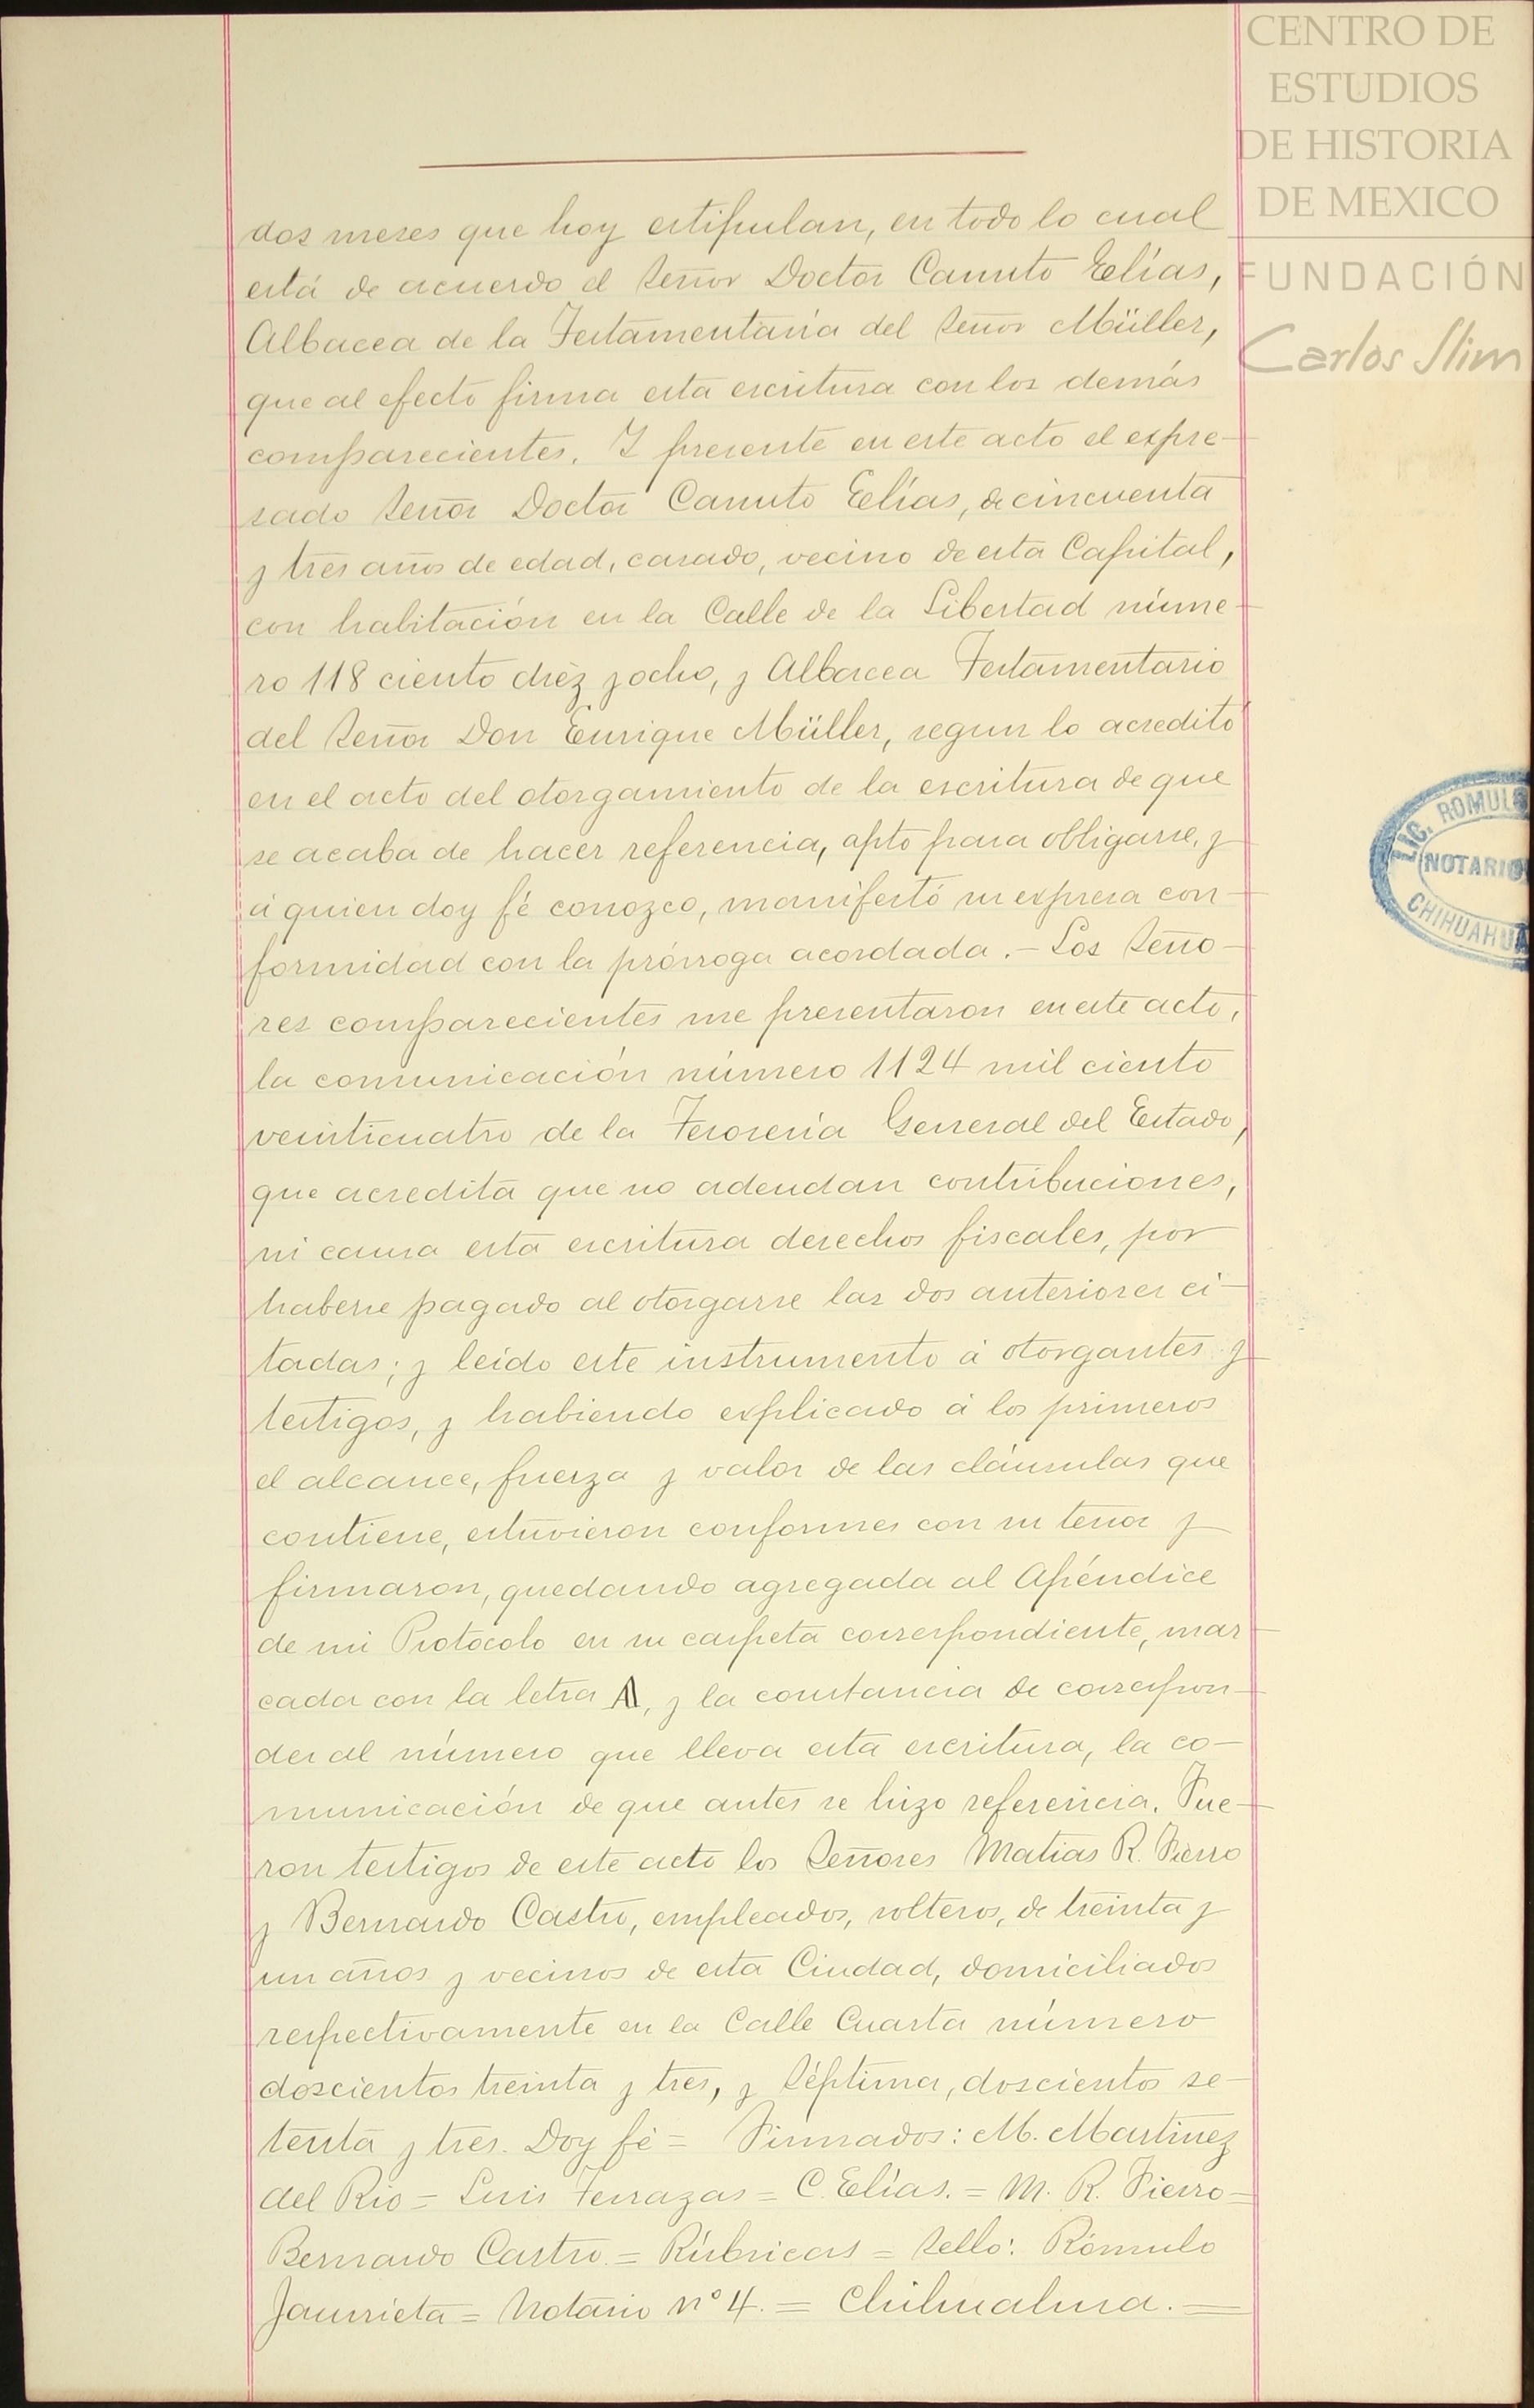 CENTRO DE
ESTUDIOS
DE HISTORIA
DE MEXICO
FUNDACIÓN
Carlos Slim
dos meses que hoy estipulan, en todo lo cual
está de acuerdo el Señor Doctor Canuto Elías,
Albacea de la Testamentaría del Señor Müller,
que al efecto firma esta escritura con los demás
comparecientes. Y presente en este acto el expre-
sado Señor Doctor Canuto Elías, de cincuenta
y tres años de edad, casado, vecino de esta Capital,
con habitación en la Calle de la Libertad núme-
ro 118 ciento diéz y ocho, y Albacea Testamentario
del Señor Don Enrique Müller, segun lo acreditó
en el acto del otorgamiento de la escritura de que
se acaba de hacer referencia, apto para obligarse, y
á quien doy fé conozco, manifestó su expresa con-
formidad con la prórroga acordada.- Los Seño-
res comparecientes me presentaron en este acto,
la comunicación número 1124 mil ciento
veinticuatro de la Tesorería General del Estado,
que acredita que no adeudan contribuciones,
ni causa esta escritura derechos fiscales, por
haberse pagado al otorgarse las dos anteriores ci-
tadas; y leído este instrumento á otorgantes y
testigos, y habiendo explicado á los primeros
el alcance, fuerza y valor de las cláusulas que
contiene, estuvieron conformes con su tenor y
firmaron, quedando agregada al Apéndice
de mi Protocolo en su carpeta correspondiente, mar-
cada con la letra A, y la constancia de correspon-
der al número que lleva esta escritura, la co-
municación de que antes se hizo referencia. Fue-
ron testigos de este acto los Señores Matias R. Fierro
y Bernardo Castro, empleados, solteros, de treinta y
un años y vecinos de esta Ciudad, domiciliados
respectivamente en la Calle Cuarta número
doscientos treinta y tres, y Séptima, doscientos se-
tenta y tres. Doy fé = Firmados: M. Martinez
del Rio = Luis Terrazas = C. Elías. = M. R. Fierro =
Bernardo Castro. = Rúbricas = Sello: Rómulo
Jaurrieta = Notario Nº 4. = Chihuahua. =
LIC. ROMULO
NOTARIO
CHIHUAHUA